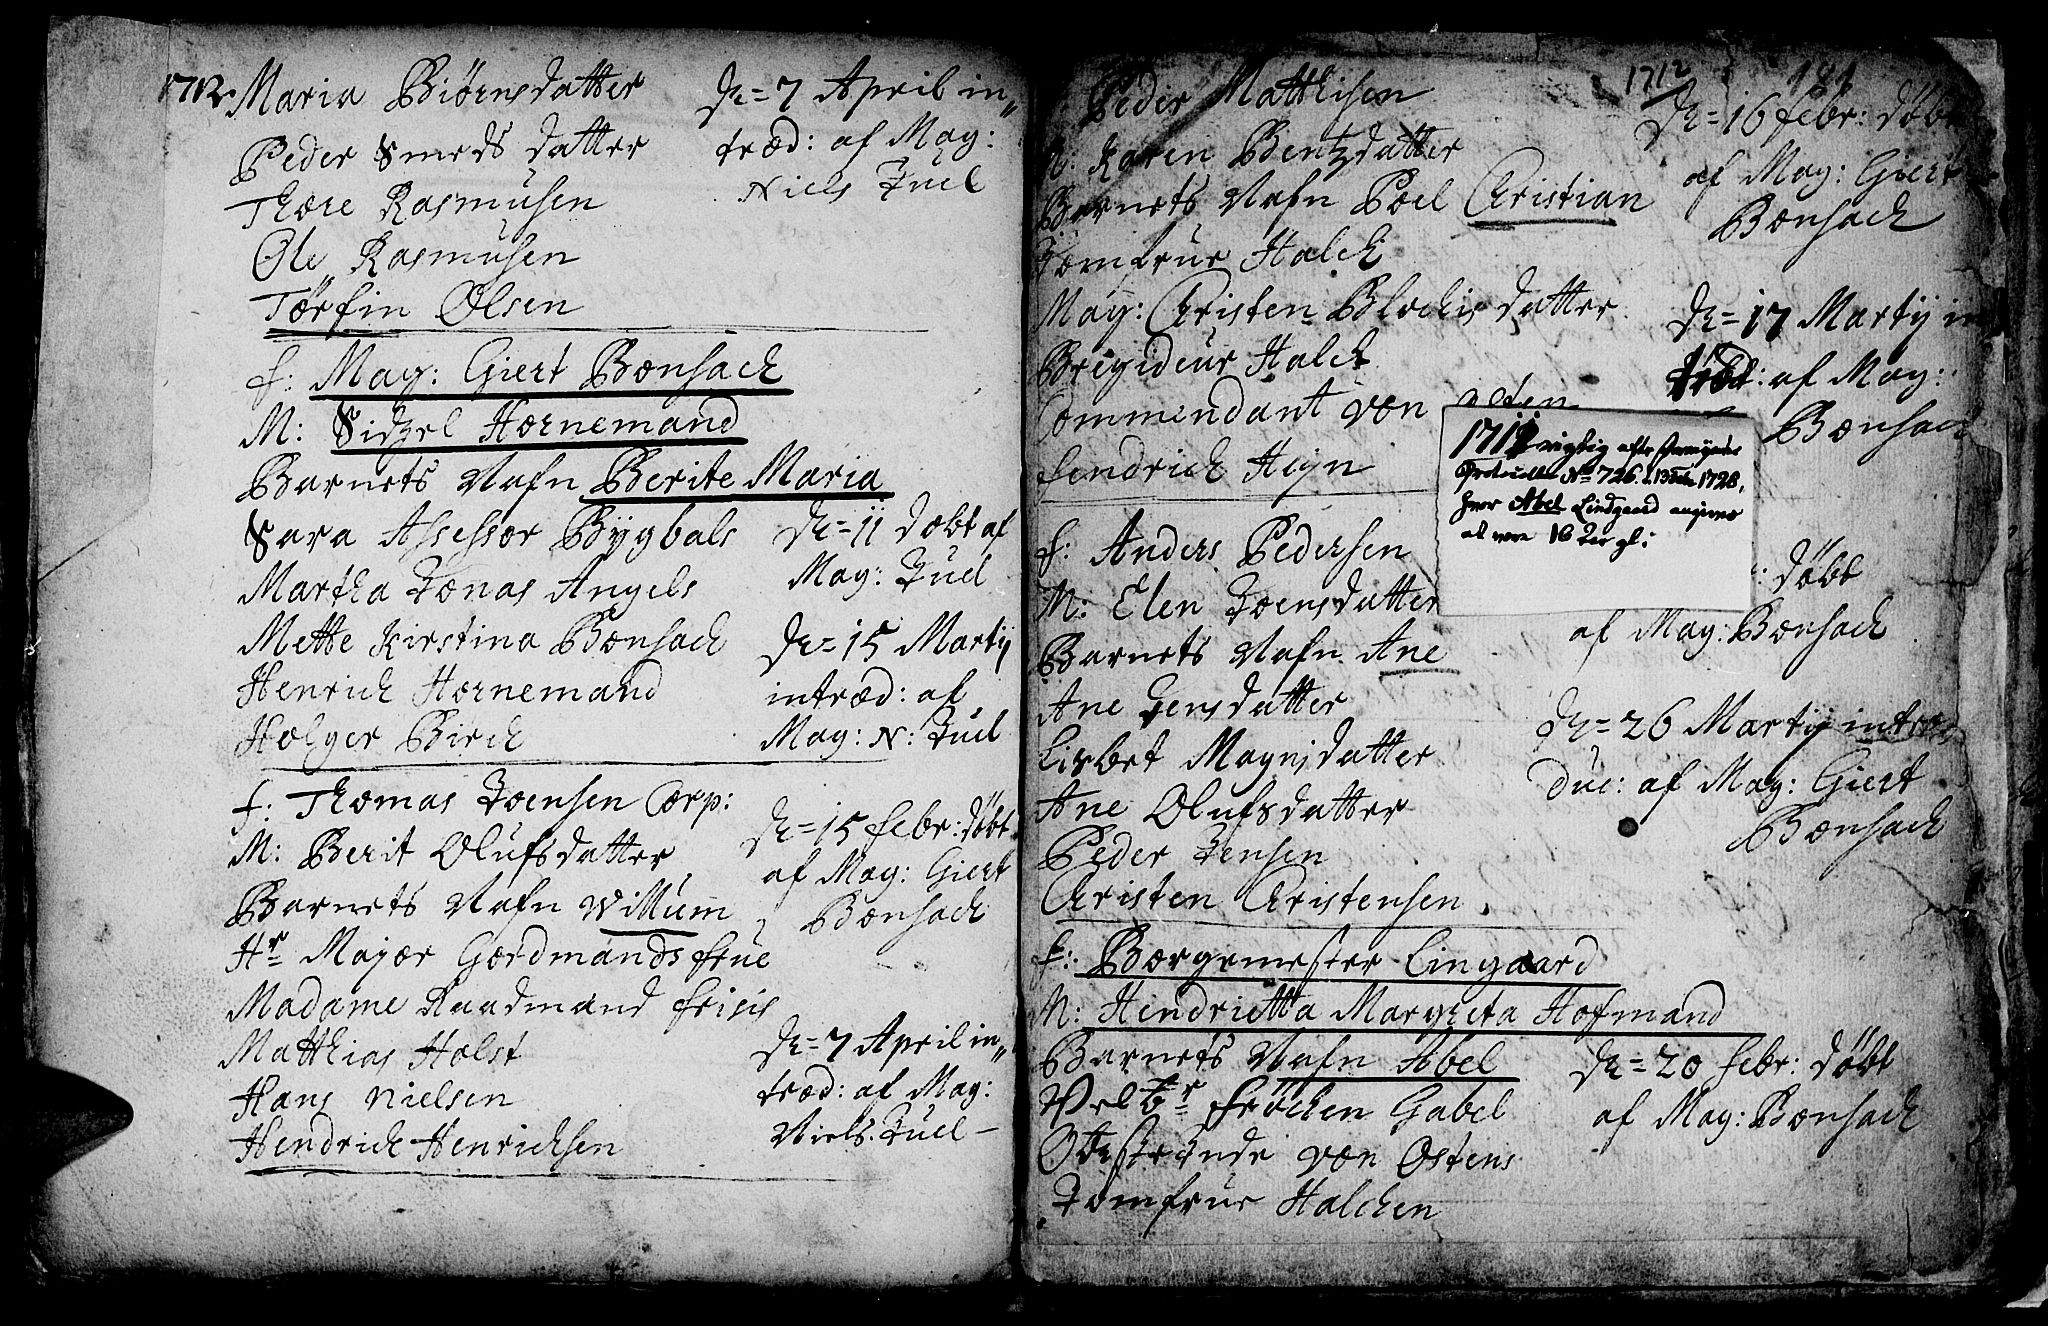 1712.
Maria Biørnsdatter
Peder Smeds datter
Thore Rasmusen
Ole Rasmusen
Torfin Olsen
D= 7 April in„
træd: af Mag:
Niels Juel
f: Mag: Giert Bonsach
M: Sidzel Hornemand
Barnets Nafn Berite Maria
Sara Assessor Bygbals
Martha Jonas Angels
Mette Kirstina Bonsach
Henrich Hornemand
Holger Birch
D= 11 døbt af
Mag: Juel
D= 15 Martij
intræd: af
Mag: N: Juel
f: Thomas Joensen Corp:
M: Berit Olufsdatter
Barnets Nafn Willum
Hr Major Gordmands frue
Madame Raadmand frisis
Matthias Holst
Hans Nielsen
Hendrich Henrichsen
D= 15 febr: døbt
af Mag: Giert
Bonsach
D= 7 April in„
træd: af Mag:
Niels Juel
1712
181
Peder Matthisen
M: Karen Bentzdatter
Barnets Nafn Poel Christian
Jomfrue Halck
Mag: Christen Blochis datter
Brigideur Halck
Commendant von
fendrich Hejn
D= 16 febr: døbt
af Mag: Giert
Bonsach
D= 17 Martij in
træd: af Mag:
Bonsach
1711 rigtig efter Formynder
Protocoll No 726. 1728,
hvor Abel Lindgaard angives
at være 16 Aar gl:
f: Anders Pedersen
M: Elen Joensdatter
Barnets Nafn Ane
Ane Jensdatter
Lisbet Magnisdatter
Ane Olufsdatter
Peder Jensen
Christen Christensen
døbt
af Mag: Bonsach
D= 26 Martij intro
duc: af Mag: Giert
Bonsach
f: Borgemester Lingaard
M: Hendrietta Margreta Hofmand
Barnets Nafn Abel
Velbr frøchen Gabel
von Ostens
Jomfrue Halchen
D= 20 febr: døbt
af Mag: Bonsach